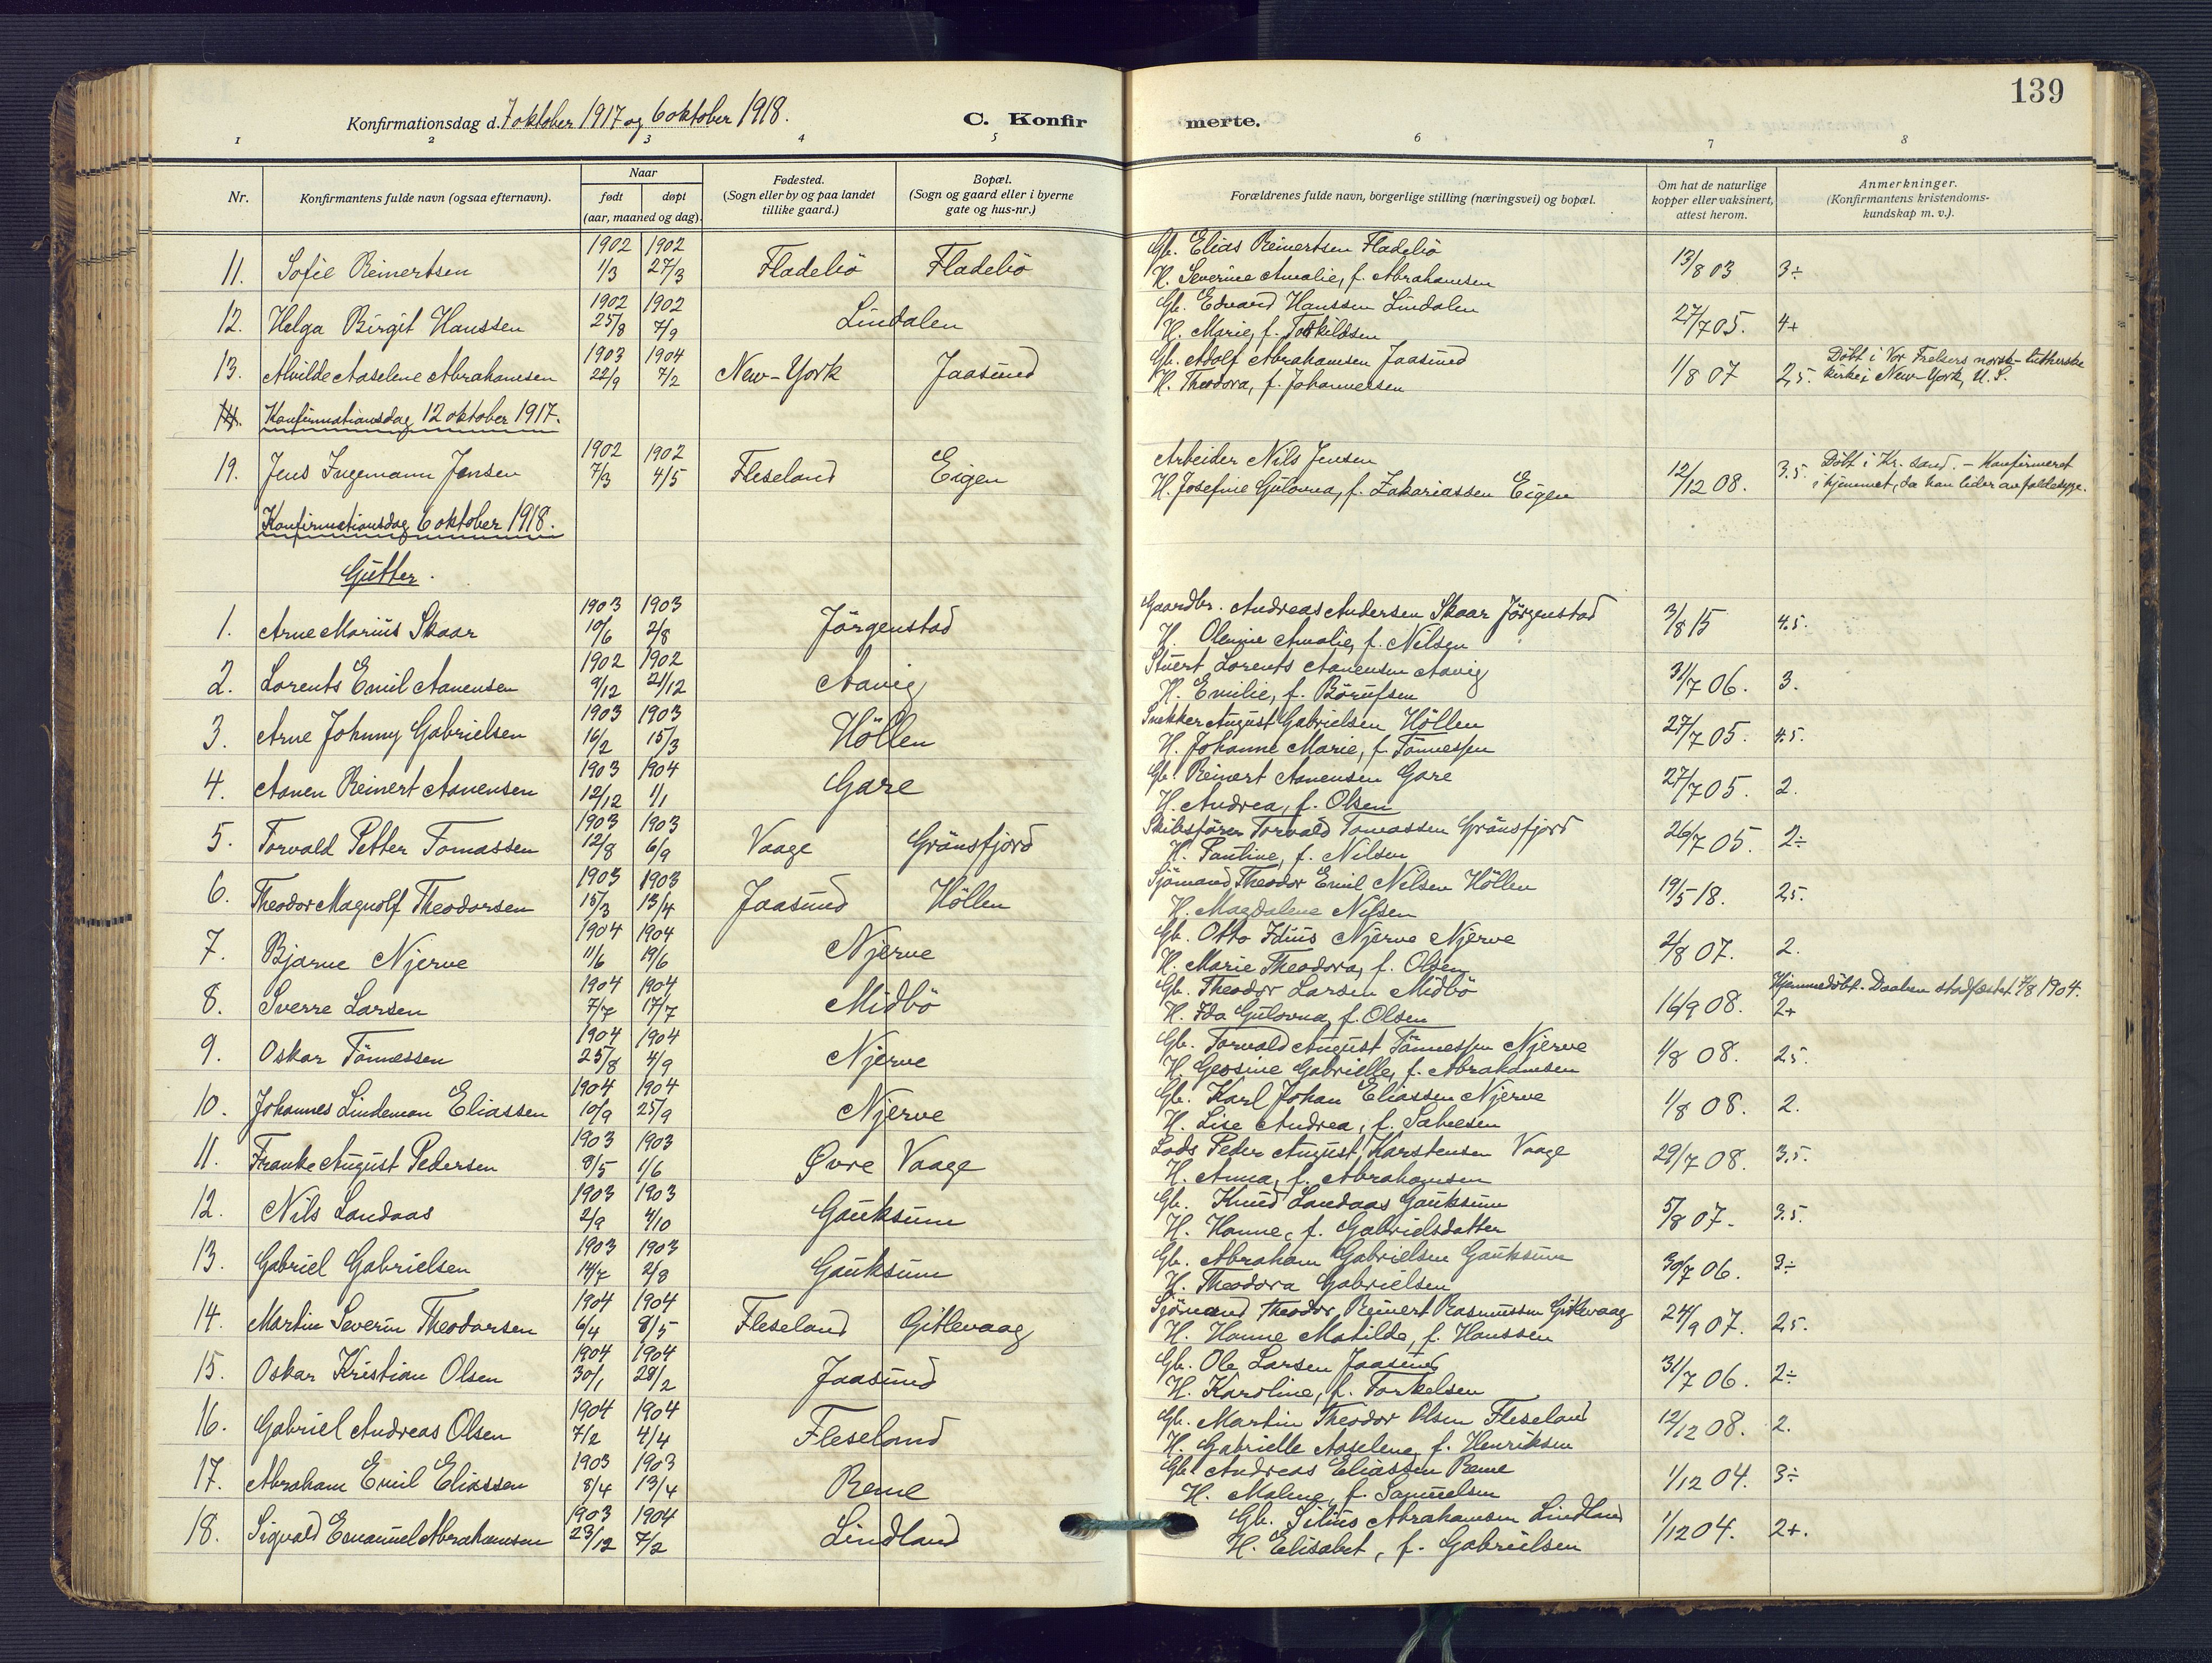 139
Konfirmationsdag d. 7 oktober 1917 og 6 oktober 1918. C. Konfirmerte.
1 2 3 4 5 6 7 8
Nr. Konfirmantens fulde navn (ogsaa efternavn). Naar født døpt (aar, maaned og dag). Fødested. (Sogn eller by og paa landet tillike gaard.) Bopæl. (Sogn og gaard eller i byerne gate og hus-nr.) Forældrenes fulde navn, borgerlige stilling (næringsvei) og bopæl. Om hat de naturlige kopper eller vaksinert, attest herom. Anmerkninger. (Konfirmantens kristendomskundskap m. v.).
11. Sofie Reinertsen 1902 1/3 1902 27/3 Fladebö Fladebö Gb. Elias Reinertsen Fladebö
H. Severine Amalie, f. Abrahamsen 13/8 03 3÷
12. Helga Birgit Hanssen 1902 25/8 1902 7/9 Lindalen Gb. Edvard Hanssen Lindalen
H. Marie, f. Torkildsen 27/7 05. 4+
13. Alvilde Aaselene Abrahamsen 1903 22/9 1904 7/2 New-York Jaasund Gb. Adolf Abrahamsen Jaasund
H. Theodora, f. Johannessen 1/8 07 2,5. Döbt i Vor Frelsers norsk-lutherske
kirke i New-York, U. S.
14. Konfirmationsdag 12 oktober 1917.
19. Jens Ingemann Jensen 1902 7/3 1902 4/5 Fleseland Eigen Arbeider Nils Jensen
H. Josefine Gulovna, f. Zakariassen Eigen 12/12 08. 3.5. Döbt i Kr. sand. - Konfirmeret
i hjemmet, da han lider av faldesyge.
Konfirmationsdag 6 oktober 1918.
Gutter.
1. Arne Marius Skaar 1903 10/6 1903 2/8 Jörgenstad Gaardbr. Andreas Andersen Skaar Jörgenstad
H. Olenine Amalie, f. Nilsen 3/8 15 4.5.
2. Lorents Emil Aanensen 1902 9/12 1902 21/12 Aavig Stuert Lorents Aanensen Aavig
H. Emilie, f. Börufsen 31/7 06. 3.
3. Arne Johnny Gabrielsen 1903 16/2 1903 15/3 Höllen Snekker August Gabrielsen Höllen
H. Johanne Marie, f. Tönnessen 27/7 05. 4.5.
4. Aanen Reinert Aanensen 1903 12/12 1904 1/1 Gare Gb. Reinert Aanensen Gare
H. Andrea, f. Olsen 27/7 05. 2.
5. Torvald Petter Tomassen 1903 12/8 1903 6/9 Vaage Grönsfjord Skibsförer Torvald Tomassen Grönsfjord
H. Pantine, f. Nilsen 26/7 05. 2÷
6. Theodor Magnolf Theodorsen 1903 15/3 1903 13/4 Jaasund Höllen Sjömand Theodor Emil Nilsen Höllen
H. Magdalene Nilsen 19/5 18. 2,5.
7. Bjarne Njerve 1904 11/6 1904 19/6 Njerve Gb. Otto Idius Njerve Njerve
H. Marie Theodora, f. Olsen 2/8 07. 2.
8. Sverre Larsen 1904 7/7 1904 17/7 Midbö Gb. Theodor Larsen Midbö
H. Ida Gulovna, f. Olsen 16/9 08. 2+ Hjemmedöbt. Daaben stadfæstet 7/8 1904.
9. Oskar Tönnessen 1904 25/8 1904 4/9 Njerve Gb. Torvald August Tönnessen Njerve
H. Gessine Gabrielle, f. Abrahamsen 1/8 08. 2,5.
10. Johannes Lindeman Eliassen 1904 10/9 1904 25/9 Njerve Gb. Karl Johan Eliassen Njerve
H. Lise Andrea, f. Salvesen 1/8 08. 2.
11. Franke August Pedersen 1903 8/5 1903 1/6 Øvre Vaage Lods Peder August Karstensen Vaage
H. Anna, f. Abrahamsen 29/7 08. 3,5.
12. Nils Landaas 1903 2/9 1903 4/10 Gauksum Gb. Knud Landaas Gauksum
H. Hanne, f. Gabrielsdatter 5/8 07. 3.5.
13. Gabriel Gabrielsen 1903 14/7 1903 2/8 Gauksum Gb. Abraham Gabrielsen Gauksum
H. Theodora Gabrielsen 30/7 06. 3÷
14. Martin Severin Theodorsen 1904 6/4 1904 8/5 Fleseland Gitlevaag Sjömand Theodor Reinert Rasmussen Gitlevaag
H. Hanne Matilde, f. Hanssen 24/9 07. 2,5.
15. Oskar Kristian Olsen 1904 30/1 1904 28/2 Jaasund Gb. Ole Larsen Jaasund
H. Karoline, f. Torkelsen 31/7 06. 2÷
16. Gabriel Andreas Olsen 1904 7/2 1904 4/4 Fleseland Gb. Martin Theodor Olsen Fleseland
H. Gabrielle Aaselene, f. Henriksen 12/12 08. 2.
17. Abraham Emil Eliassen 1903 8/4 1903 13/4 Reme Gb. Andreas Eliassen Reme
H. Malene, f. Samuelsen 1/12 04. 3÷
18. Sigvald Emanuel Abrahamsen 1903 23/12 1904 7/2 Lindland Gb. Silius Abrahamsen Lindland
H. Elisabet, f. Gabrielsen 1/12 04. 2+.